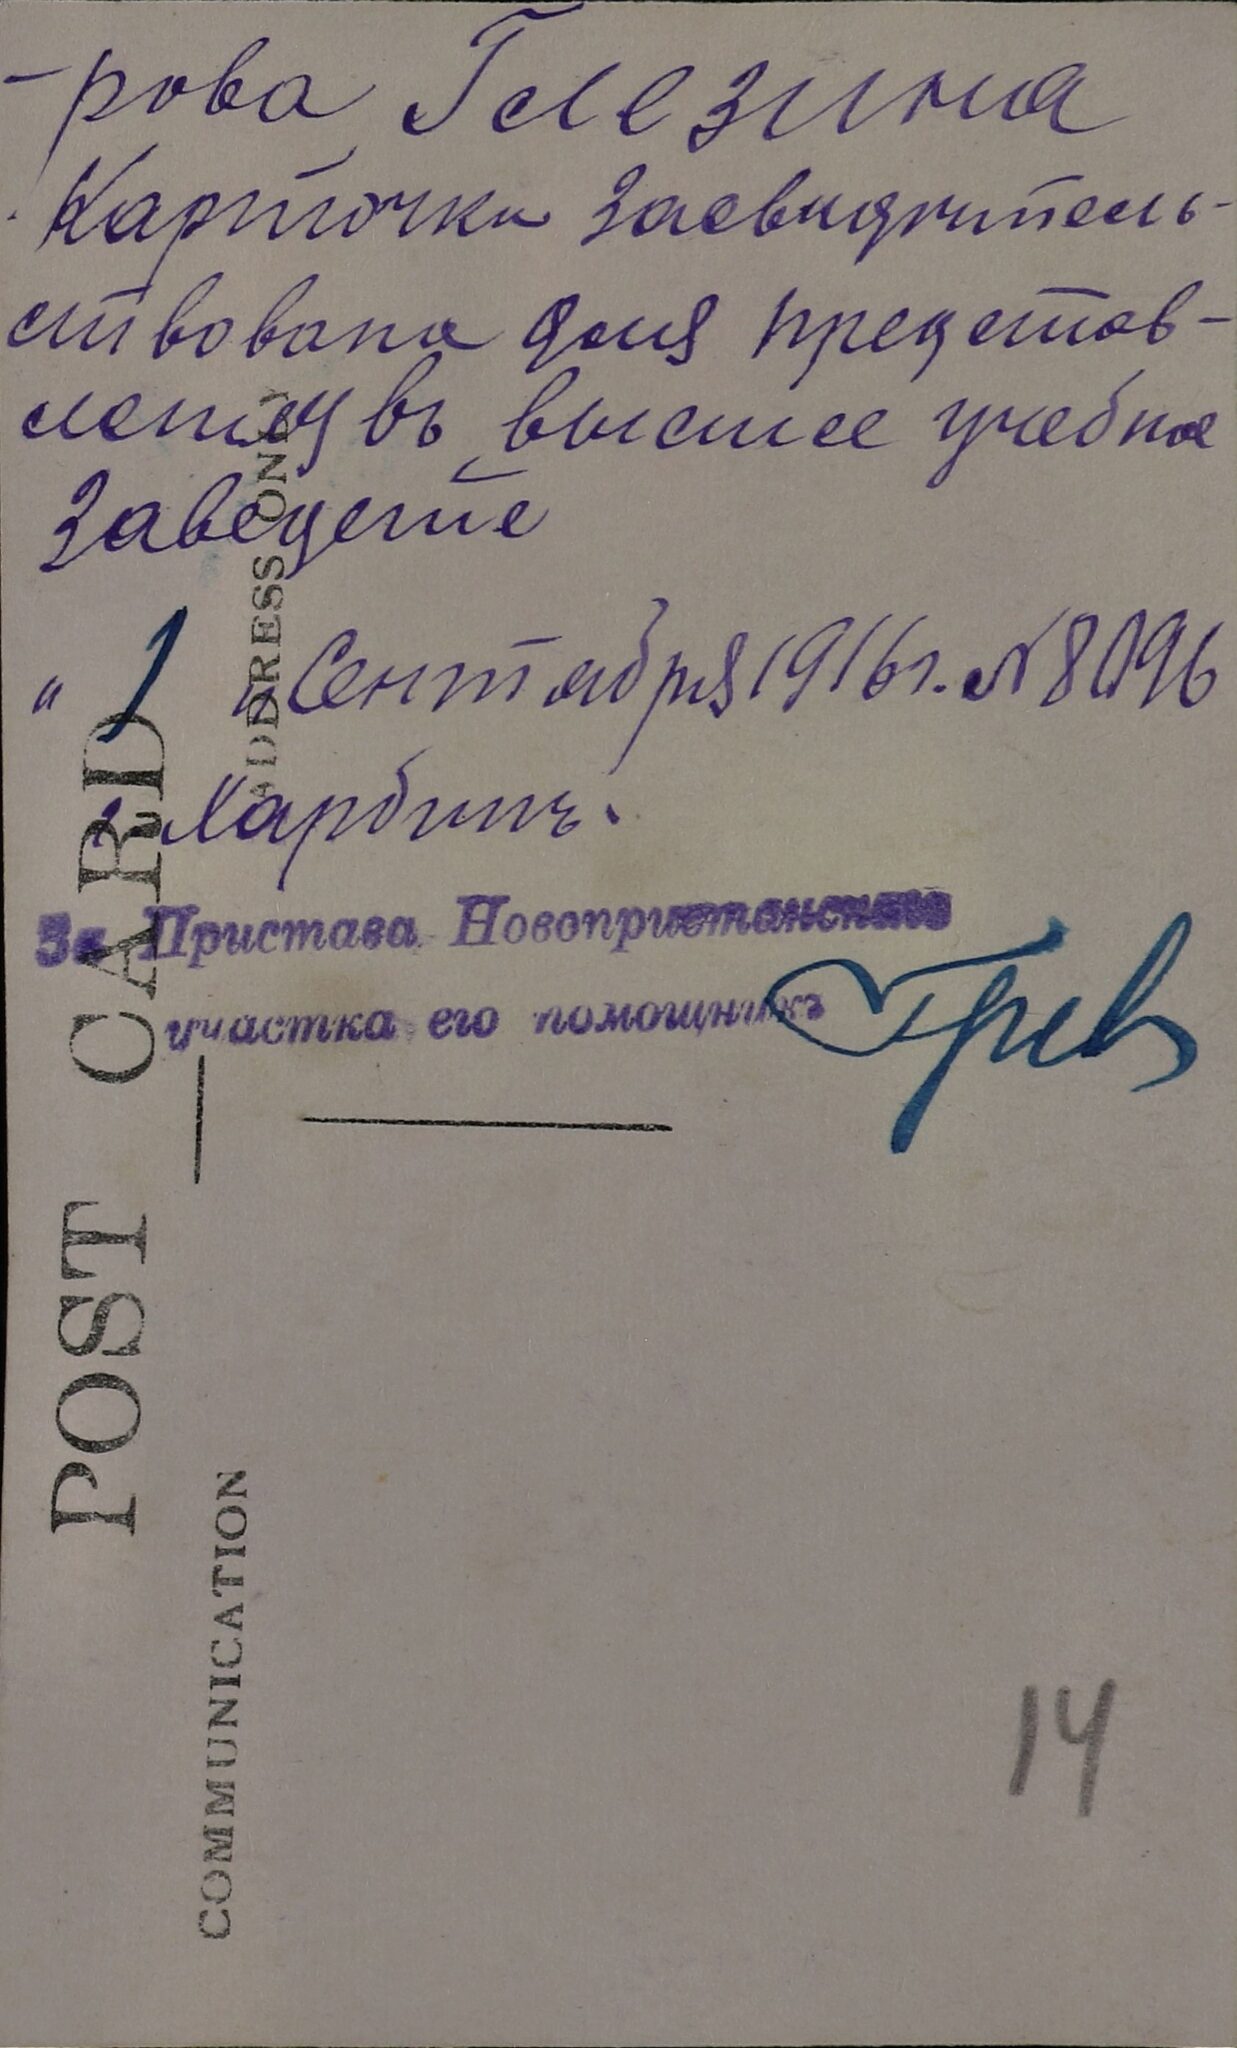 -рова Глезина
Карточка засвидѣтель-
ствована для представ-
ленiя въ высшее учебное
заведенiе
"1" Сентября 1916 г. № 8096
г. Харбинъ.
За Пристава Новопристанскаго
участка его помощникъ
POST CARD
ADDRESS ONLY
COMMUNICATION
14